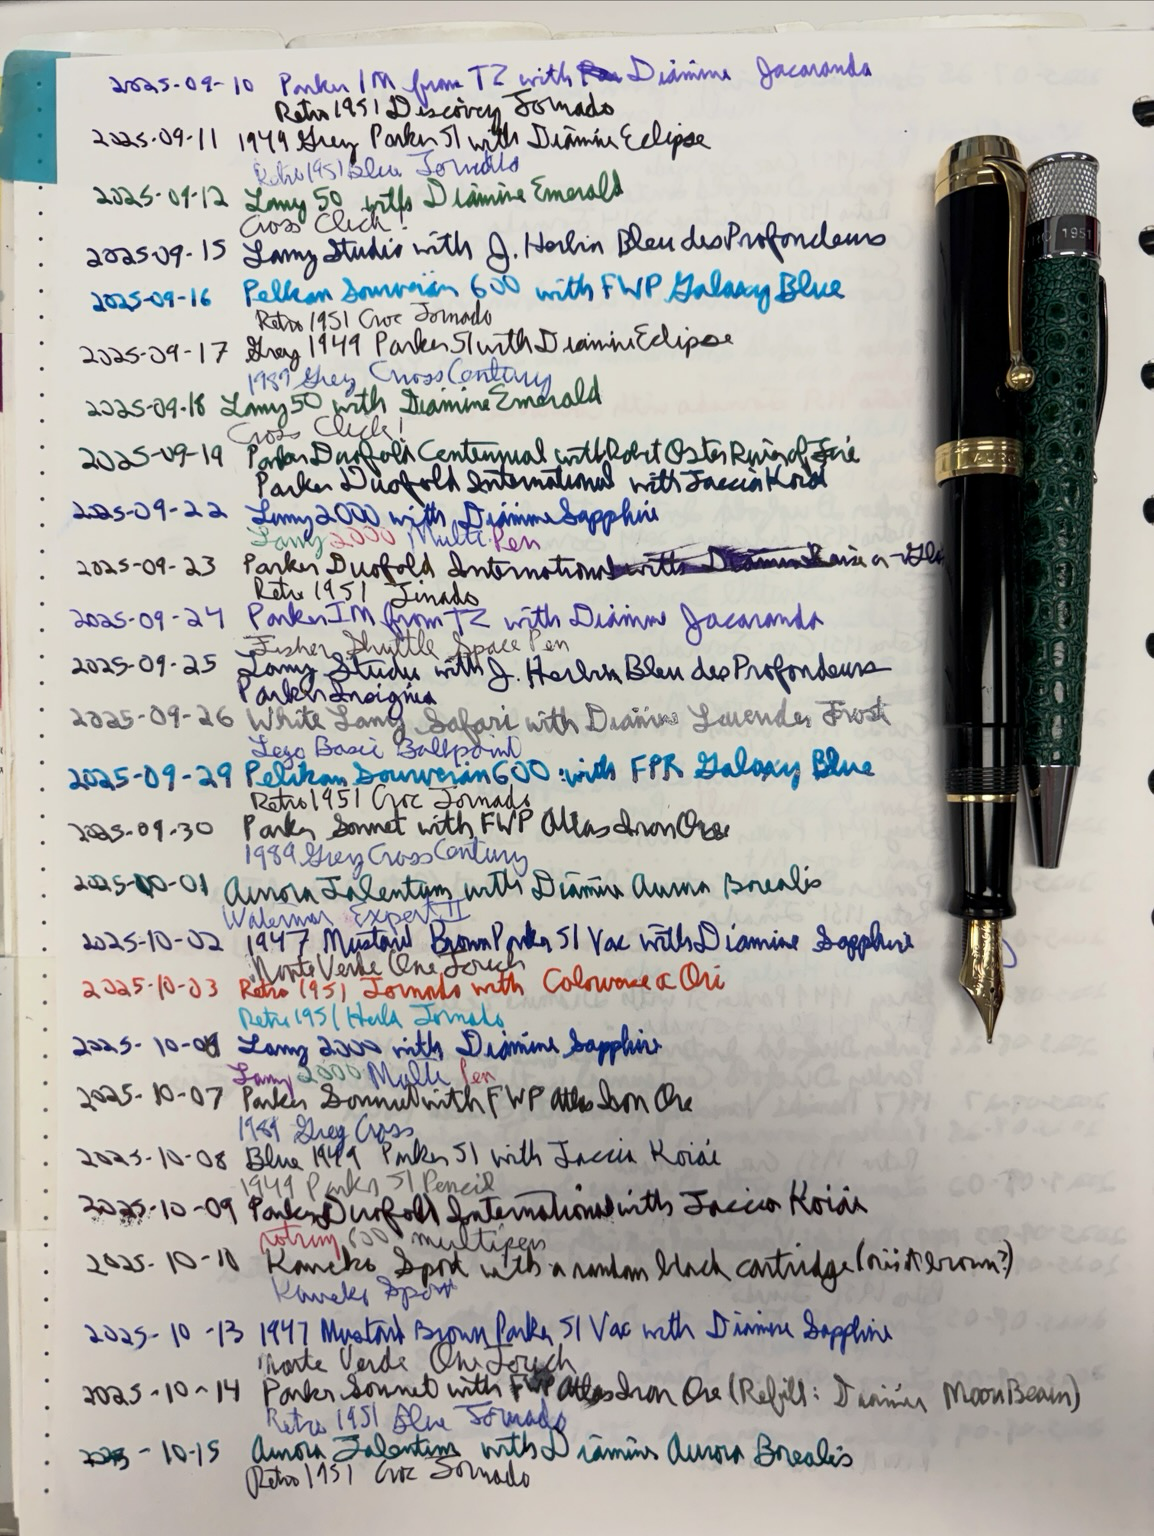 2025-09-10 Parker IM from TZ with Diamine Jacaranda
Retro 1951 Discovery Tornado
2025-09-11 1949 Grey Parker 51 with Diamine Eclipse
Retro 1951 Blue Tornado
2025-09-12 Lamy 50 with Diamine Emerald
Cross Click!
2025-09-15 Lamy Studio with J. Herbin Bleu des Profondeurs
2025-09-16 Pelikan Souverän 600 with FWP Galaxy Blue
Retro 1951 Croc Tornado
2025-09-17 Grey 1949 Parker 51 with Diamine Eclipse
1989 Grey Cross Century
2025-09-18 Lamy 50 with Diamine Emerald
Cross Click!
2025-09-19 Parker Duofold Centennial with Robert Oster River of Fire
Parker Duofold International with Taccia Koiai
2025-09-22 Lamy 2000 with Diamine Sapphire
Lamy 2000 Multi Pen
2025-09-23 Parker Duofold International with Diamine
Retro 1951
2025-09-24 Parker IM from TZ with Diamine Jacaranda
Fisher Shuttle Space Pen
2025-09-25 Lamy Studio with J. Herbin Bleu des Profondeurs
Parker Insignia
2025-09-26 White Lamy Safari with Diamine Lavender Frost
Lego Basic Ballpoint
2025-09-29 Pelikan Souverän 600 with FPR Galaxy Blue
Retro 1951 Croc Tornado
2025-09-30 Parker Sonnet with FWP Atlas Iron Ore
1989 Grey Cross Century
2025-10-01 Aurora Talentum with Diamine Aurora Borealis
Waterman Expert II
2025-10-02 1947 Mustard Brown Parker 51 Vac with Diamine Sapphire
Monte Verde One Touch
2025-10-03 Retro 1951 Tornado with Colorverse α Ori
Retro 1951 Tornado
2025-10-06 Lamy 2000 with Diamine Sapphire
Lamy 2000 Multi Pen
2025-10-07 Parker Sonnet with FWP Atlas Iron Ore
1989 Grey Cross
2025-10-08 Blue 1949 Parker 51 with Taccia Koiai
1949 Parker 51 Pencil
2025-10-09 Parker Duofold International with Taccia Koiai
rotring 600 multipen
2025-10-10 Kaweco Sport with a random black cartridge (or is it brown?)
Kaweco Sport
2025-10-13 1947 Mustard Brown Parker 51 Vac with Diamine Sapphire
Monte Verde One Touch
2025-10-14 Parker Sonnet with FWP Atlas Iron Ore (Refill: Diamine MoonBeam)
Retro 1951 Blue Tornado
2025-10-15 Aurora Talentum with Diamine Aurora Borealis
Retro 1951 Croc Tornado
1951
AURO